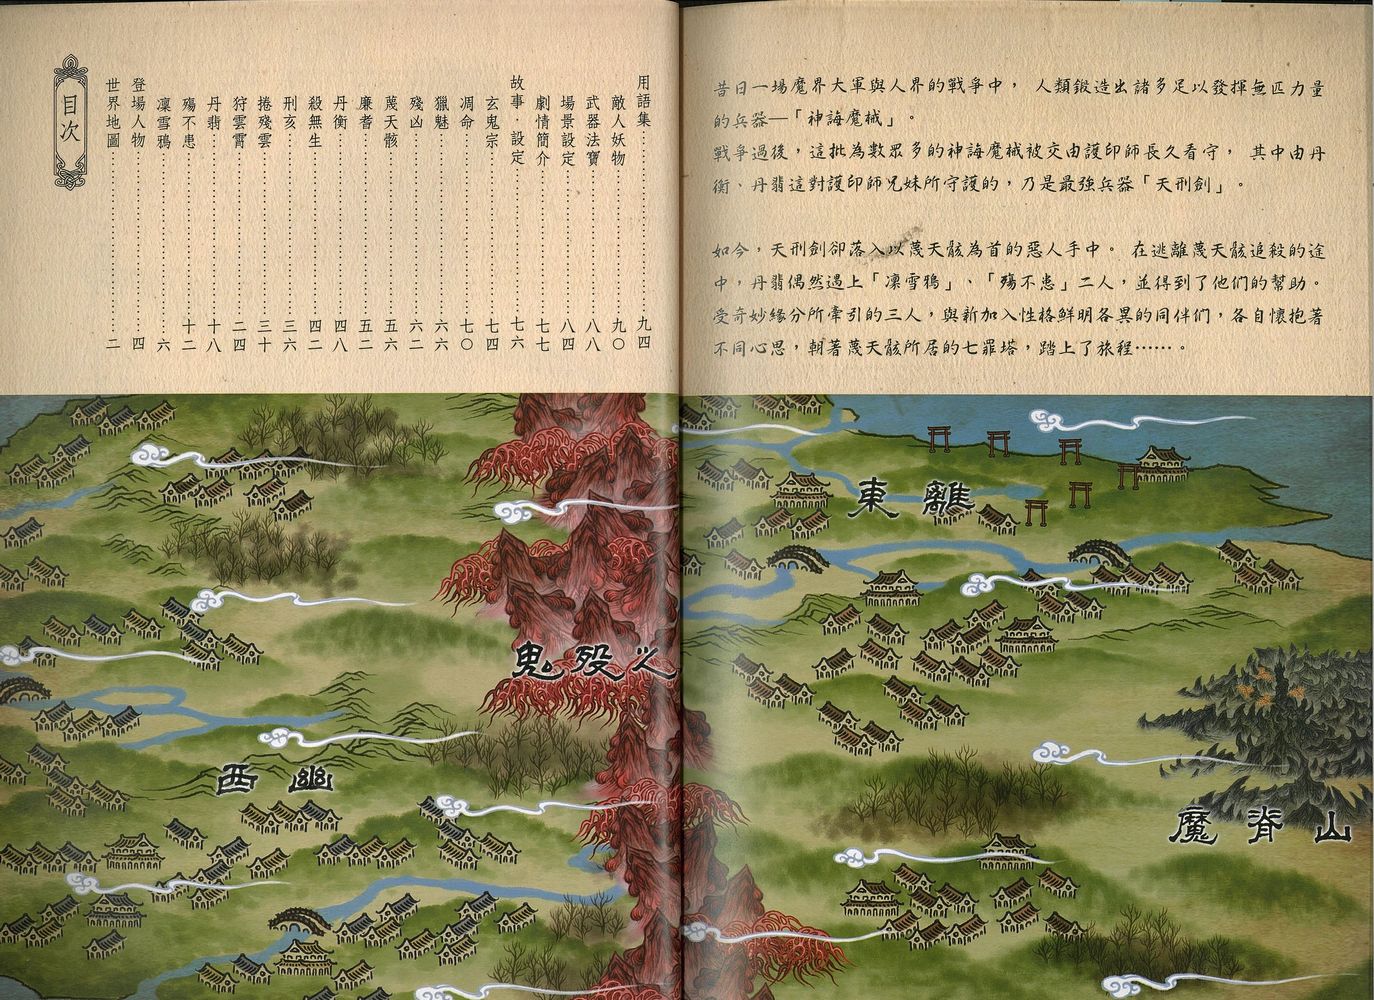 目次
世界地圖……………………二
登場人物……………………四
凜雪鴉……………………六
殤不患……………………十二
丹翡……………………十八
狩雲霄……………………二四
捲殘雲……………………三十
刑亥……………………三六
殺無生……………………四二
丹衡……………………四八
廉耆……………………五二
蔑天骸……………………五六
殘凶……………………六二
獵魅……………………六六
凋命……………………七〇
玄鬼宗……………………七四
故事‧設定……………………七六
劇情簡介……………………七七
場景設定……………………八四
武器法寶……………………八八
敵人妖物……………………九〇
用語集……………………九四
昔日一場魔界大軍與人界的戰爭中， 人類鍛造出諸多足以發揮無匹力量
的兵器─「神誨魔械」。
戰爭過後，這批為數眾多的神誨魔械被交由護印師長久看守， 其中由丹
衡、丹翡這對護印師兄妹所守護的，乃是最強兵器「天刑劍」。
如今，天刑劍卻落入以蔑天骸為首的惡人手中。 在逃離蔑天骸追殺的途
中，丹翡偶然遇上「凜雪鴉」、「殤不患」二人，並得到了他們的幫助。
受奇妙緣分所牽引的三人，與新加入性格鮮明各異的同伴們，各自懷抱著
不同心思，朝著蔑天骸所居的七罪塔，踏上了旅程……。
東離
鬼歿
西幽
魔脊山